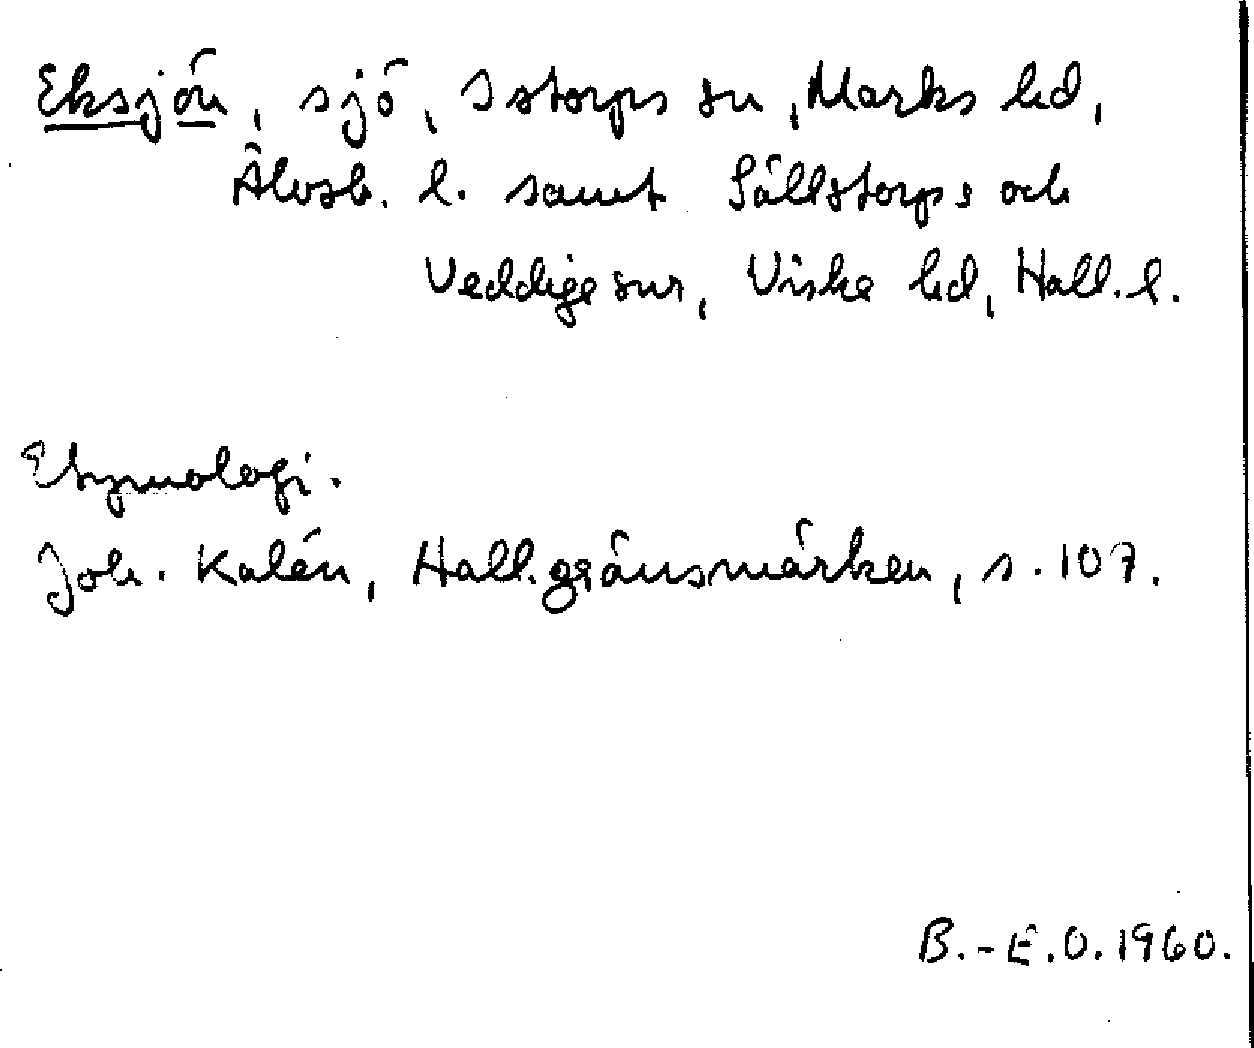 Eksjön, sjö, Istorps sn, Marks hd,
Älvsb. l. samt Sällstorps och
Veddige snr, Viske hd, Hall. l.
Etymologi.
Joh. Kalén, Hall. gränsmärken, s. 107.
B.-E.O. 1960.